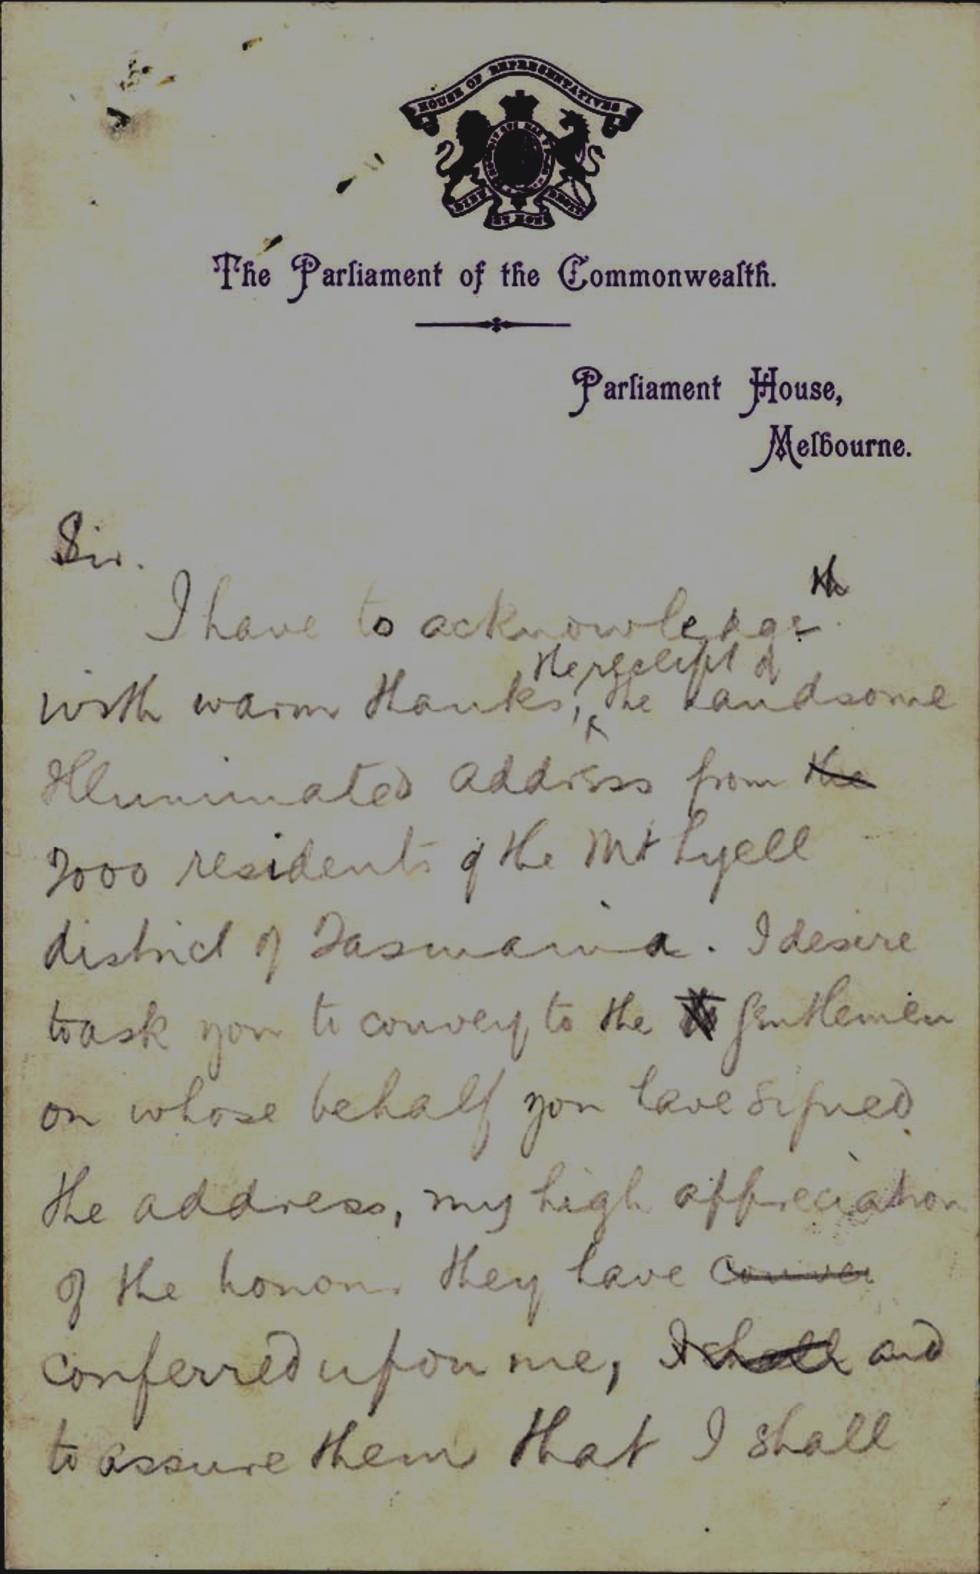 HOUSE OF REPRESENTATIVES
DIEU ET MON DROIT
The Parliament of the Commonwealth.
Parliament House,
Melbourne.
Sir.
I have to acknowledge th
the receipt of
with warm thanks, the handsome
Illuminated address from the
2000 residents of the Mt Lyell
district of Tasmania. I desire
to ask you to convey to the gentlemen
on whose behalf you have signed
the address, my high appreciation
of the honour they have conve
conferred upon me, I shall and
to assure them that I shall